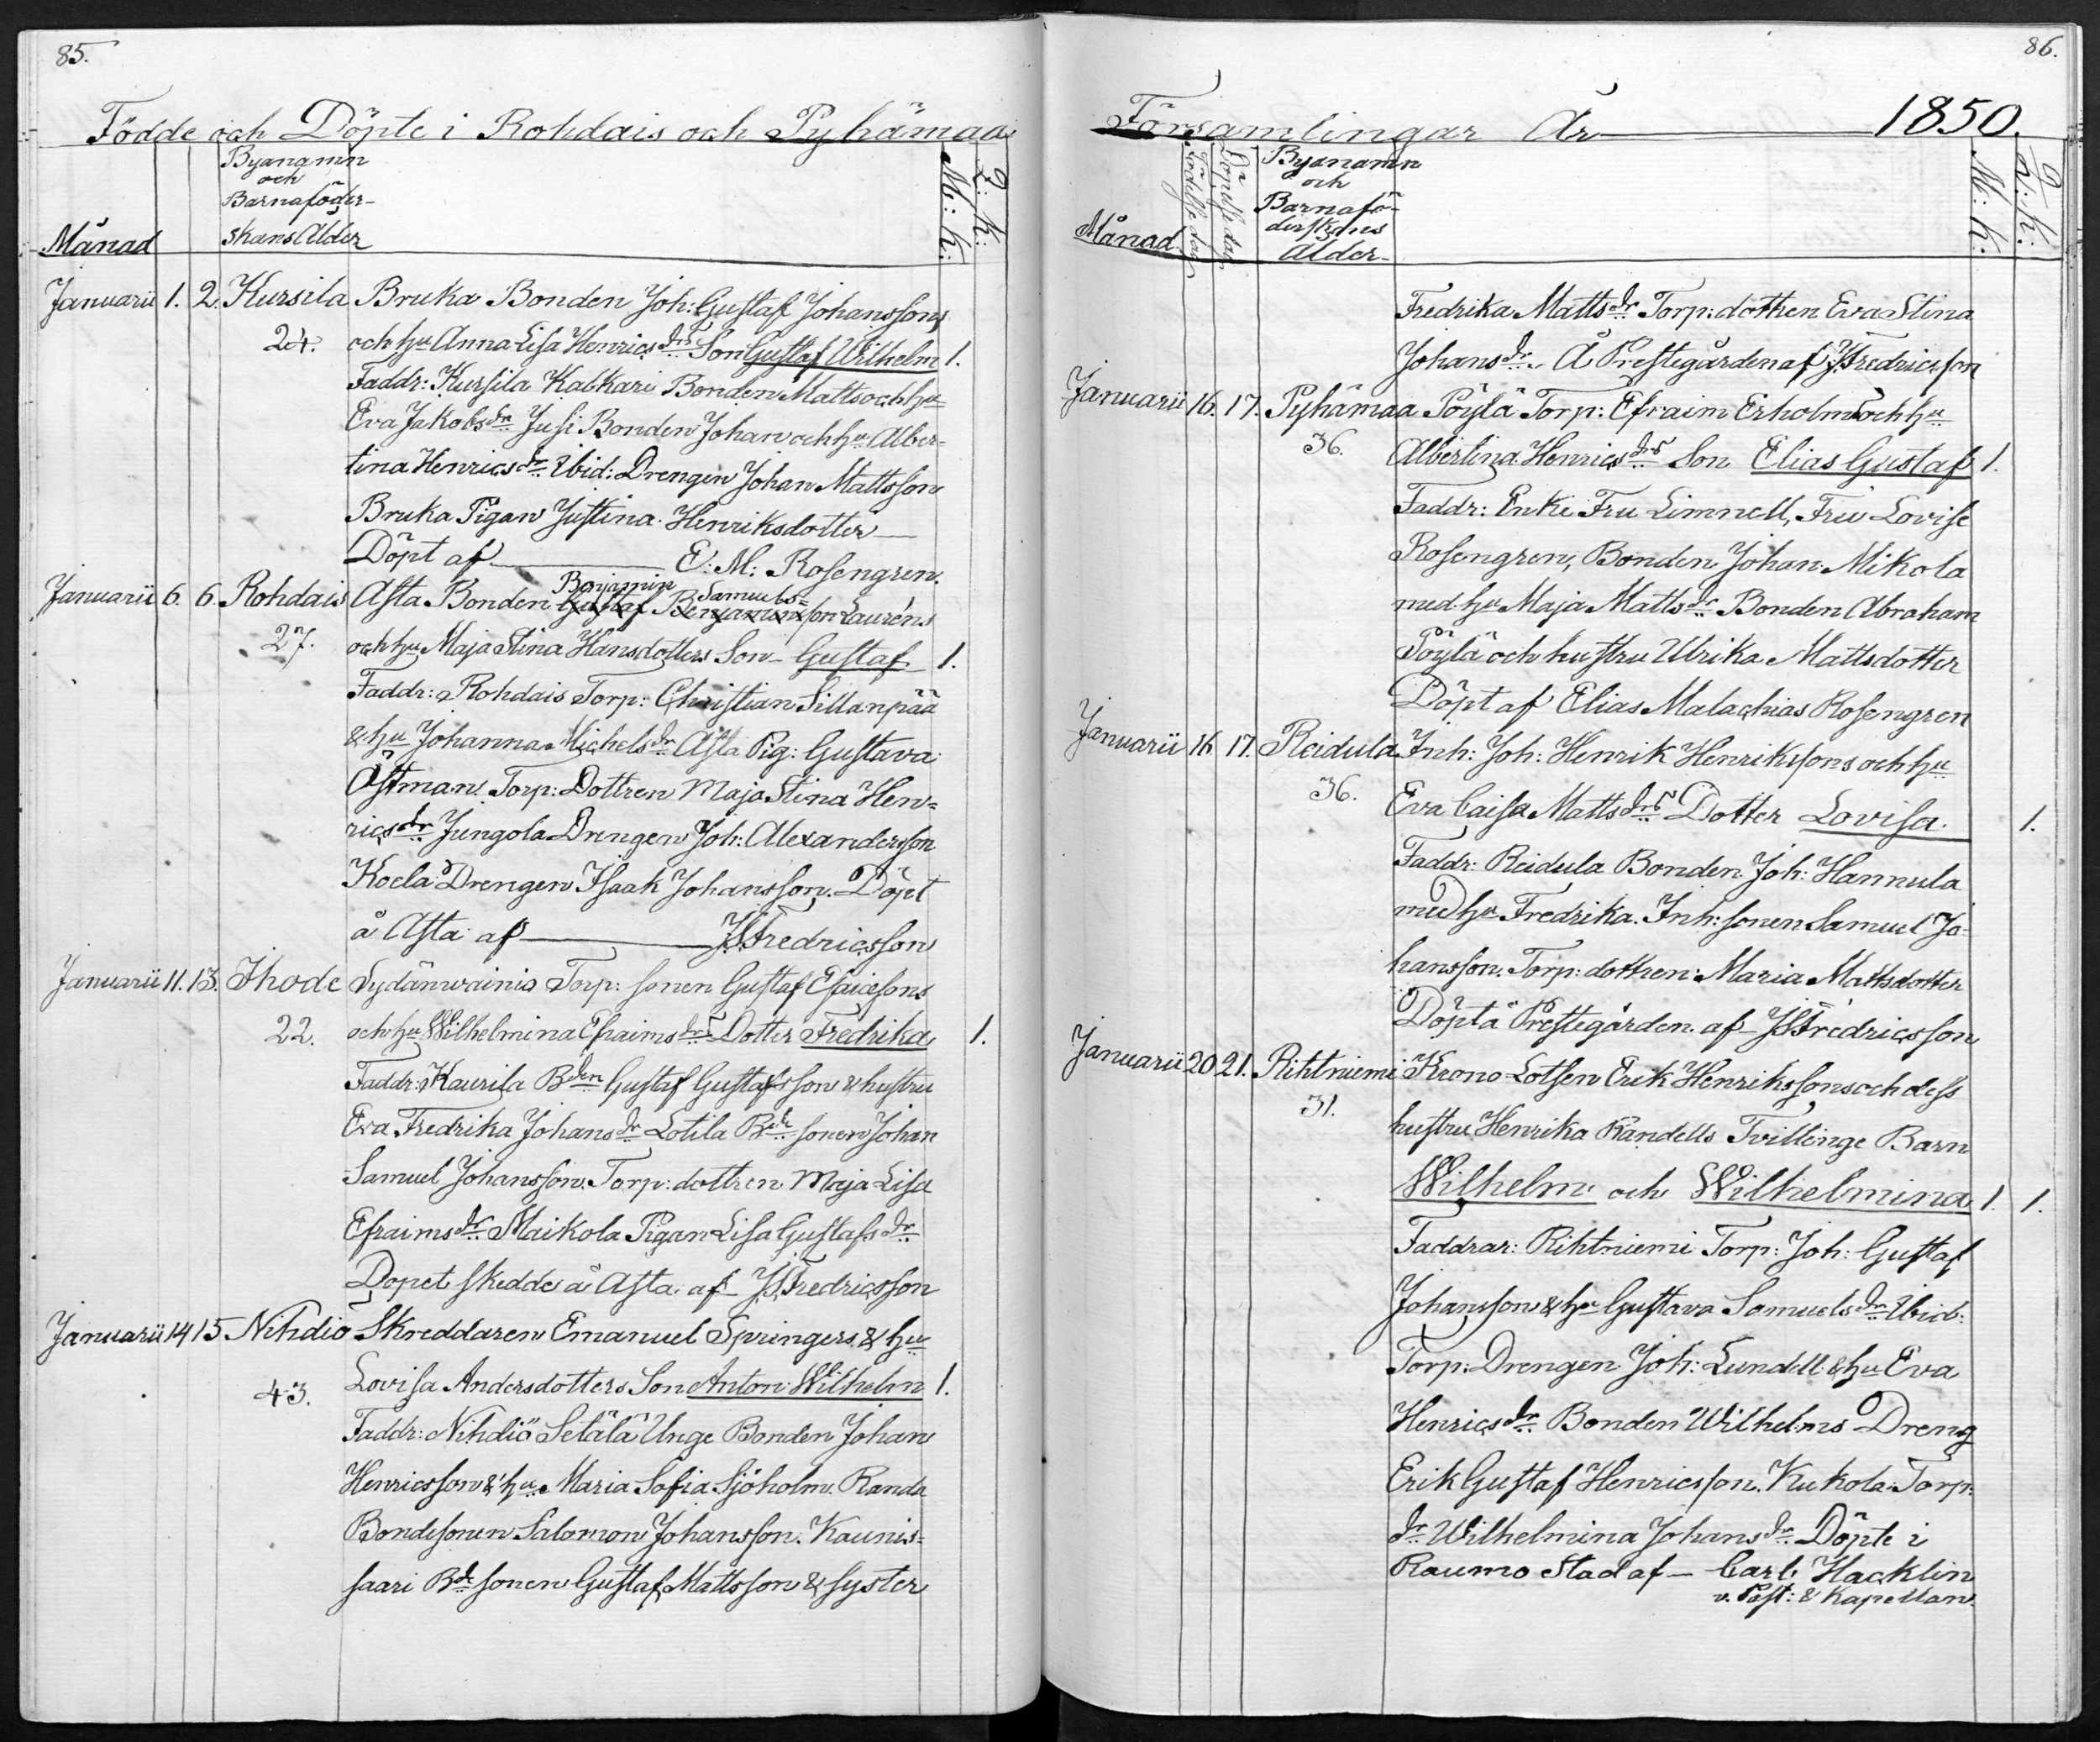 85.
Födde och Döpte i Rohdais och Pyhämaa
Byanamn
och
Barnaföder-
skans Ålder
Månad
M: K:
Q: K:
Januarii 1. 2. Kursila Bruka Bonden Joh: Gustaf Johanssons
24. och hu Anna Lisa Henricsdrs Son Gustaf Wilhelm 1.
Faddr: Kursila Kabkari Bonden Matts och hu
Eva Jakobsdr Jusi Bonden Johan och hu Alber-
tina Henricsdr Ibid: Drengen Johan Mattsson
Bruka Pigan Justina Henriksdotter
Döpt af E: M: Rosengren.
Januarii 6. 6. Rohdais Asta Bonden Gustaf Benjamin Benjaminsson Samuels= Lauréns
27. och hu Maja Stina Hansdotters Son Gustaf 1.
Faddr: Rohdais Torp: Christian Sillanpää
& hu Johanna Michelsdr Asta Pig: Gustava
Östman Torp: Dottren Maja Stina Hen=
ricsdr Jungola Drengen Joh: Alexandersson
Koela Drengen Isaak Johansson. Döpt
å Asta af JFredricsson
Januarii 11. 13. Ihode Sydänwainio Torp: sonen Gustaf Esaiesons
22. och hu Wilhelmina Efraimsdrs Dotter Fredrika 1.
Faddr: Kaurila Bden Gustaf Gustafsson & hustru
Eva Fredrika Johansdr Lotila Bde sonen Johan
Samuel Johansson. Torp: dottren Maja Lisa
Efraimsdr Maikola Pigan Lisa Gustafsdr
Dopet skedde å Asta af JFredricsson
Januarii 14 15 Nihdiö Skreddaren Emanuel Springers & hu
43. Lovisa Andersdotters Son Anton Wilhelm 1.
Faddr: Nihdiö Setälä Unge Bonden Johan
Henricsson & hu Maria Sofia Sjöholm. Randa
Bondesonen Salomon Johansson. Kaunis=
saari Bde sonen Gustaf Mattsson & syster
86.
Församlingar År 1850.
Månad
Födelse dag
Döpelse dag
Byanamn
och
Barnafö-
derskans
Ålder
M: K:
Q: K:
Fredrika Mattsdr Torp: dottren Eva Stina
Johansdr. Å Prestegården af JFredricsson
Januarii 16. 17. Pyhämaa Pöylä Torp: Efraim Erholms och hu
36. Albertina Henricsdrs Son Elias Gustaf 1.
Faddr: Enke Fru Limnell, Fru Lovise
Rosengren, Bonden Johan Mikola
med hu Maja Mattsdr Bonden Abraham
Pöylä och hustru Ulrika Mattsdotter
Döpt af Elias Malachias Rosengren
Januarii 16 17. Reidula Inh: Joh: Henrik Henrikssons och hu
36. Eva Caisa Mattsdrs Dotter Lovisa. 1.
Faddr: Reidula Bonden Joh: Hannula
med hu Fredrika. Inh: sonen Samuel Jo-
hansson. Torp: dottren Maria Mattsdotter
Döpt å Prestegården af JFredricsson
Januarii 20 21. Rihtniemi Krono Lotsen Erik Henrikssons och dess
31. hustru Henrika Randells Tvillinge Barn
Wilhelm och Wilhelmina 1. 1.
Faddrar: Rihtniemi Torp: Joh: Gustaf
Johansson & hu Gustava Samuelsdr Ibid:
Torp: Drengen Joh: Lundell & hu Eva
Henricsdr Bonden Wilhelms Dreng
Erik Gustaf Henricsson. Kukola Torp:
dr Wilhelmina Johansdr Döpte i
Raumo Stad af – Carl Hacklin
v. Past: & Kapellan.